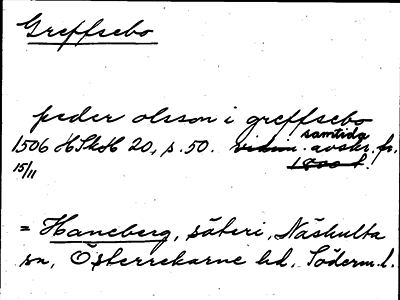 Greffsebo
peder olsson i greffsebo
samtida
1506 HSkH 20, s. 50. vidim. avskr. fr.
15/11 1800 t.
= Haneberg, säteri, Näshulta
sn, Österrekarne hd, Söderm. l.